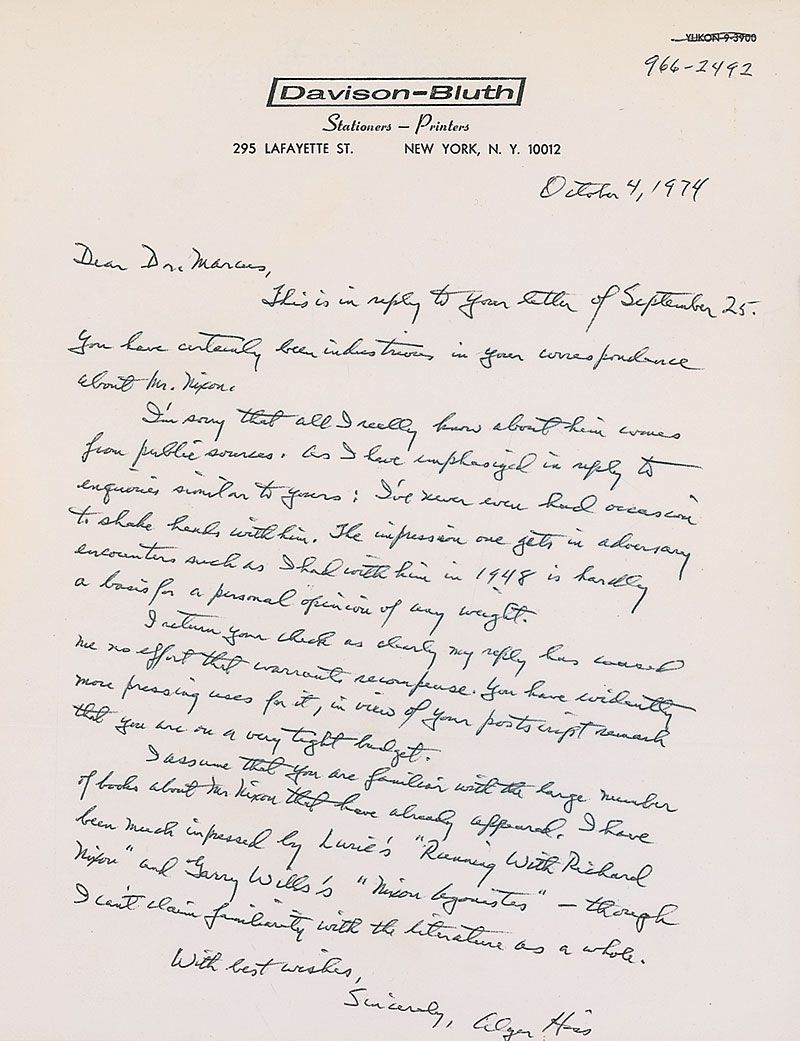 YUKON 9-3900
966-2492
Davison-Bluth
Stationers — Printers
295 LAFAYETTE ST. NEW YORK, N. Y. 10012
October 4, 1974
Dear Dr. Marcus,
This is in reply to your letter of September 25.
You have certainly been industrious in your correspondence
about Mr. Nixon.
I'm sorry that all I really know about him comes
from public sources. As I have emphasized in reply to
enquiries similar to yours: I've never even had occasion
to shake hands with him. The impression one gets in adversary
encounters such as I had with him in 1948 is hardly
a basis for a personal opinion of any weight.
I return your check as clearly my reply has caused
me no effort that warrants recompense. You have evidently
more pressing uses for it, in view of your postscript remark
that you are on a very tight budget.
I assume that you are familiar with the large number
of books about Mr Nixon that have already appeared. I have
been much impressed by Lurie's "Running With Richard
Nixon" and Garry Wills's "Nixon Agonistes" — though
I can't claim familiarity with the literature as a whole.
With best wishes,
Sincerely, Alger Hiss